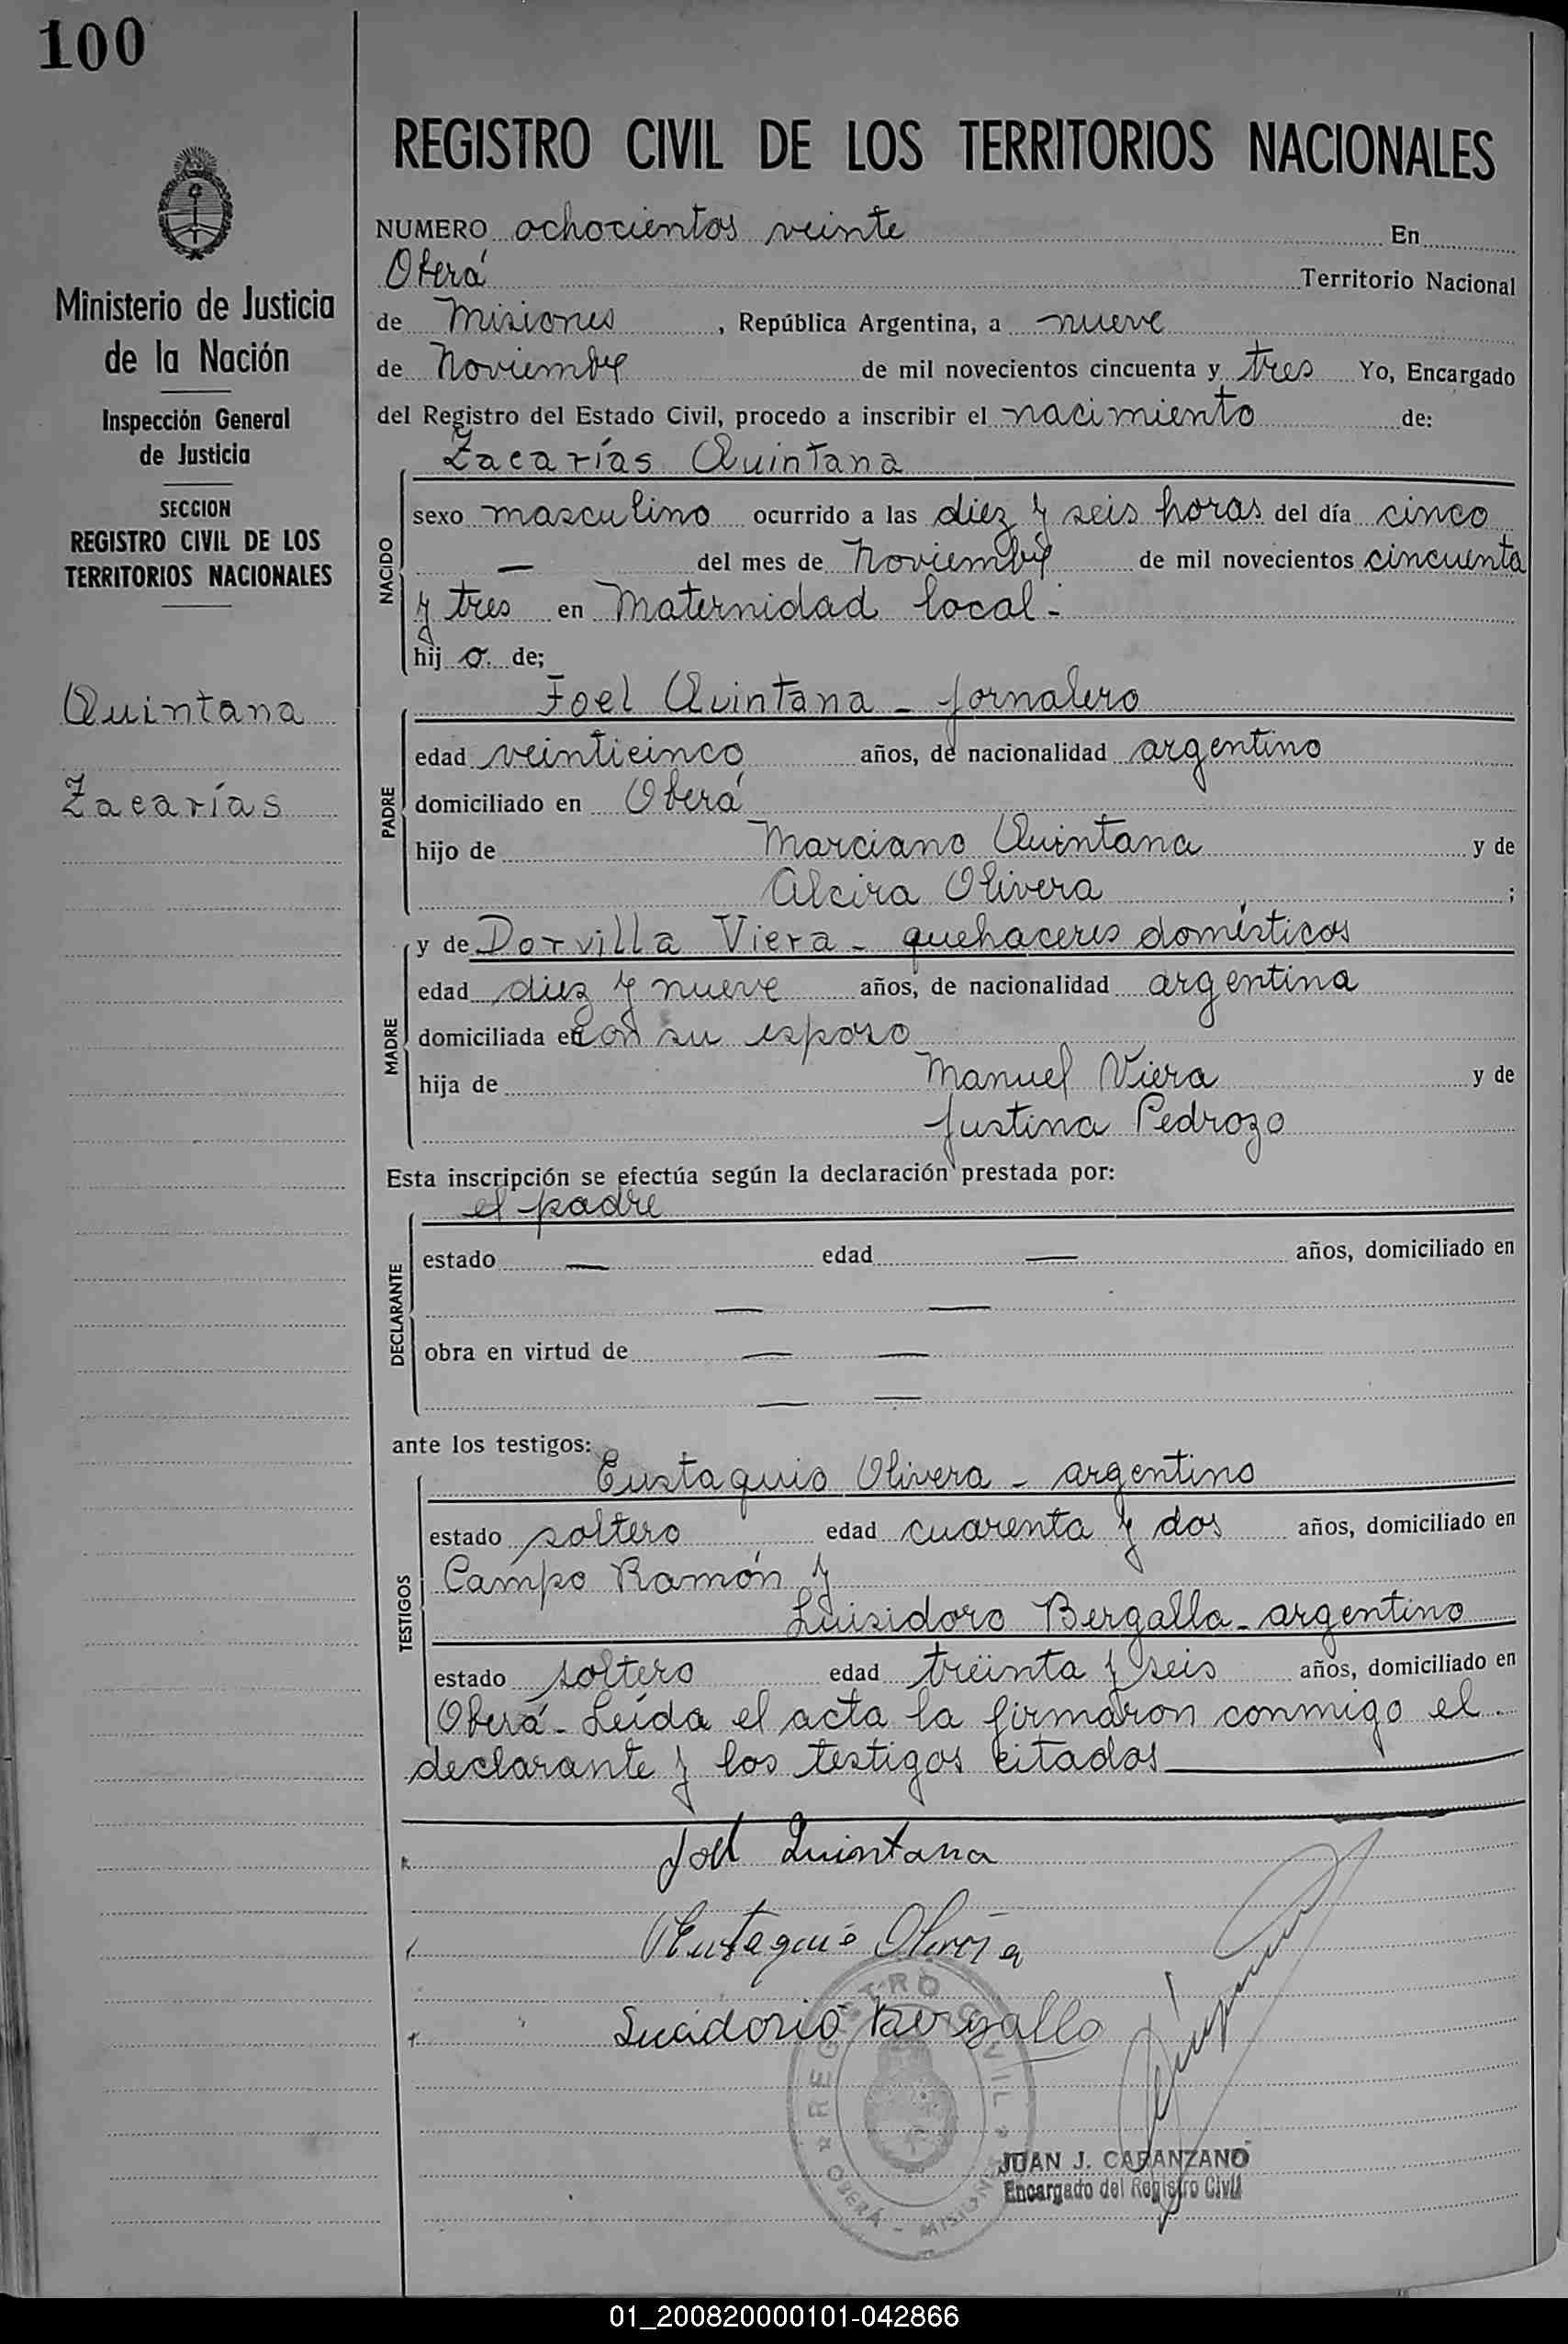 100
REGISTRO CIVIL DE LOS TERRITORIOS NACIONALES
Ministerio de Justicia
de la Nación
Inspección General
de Justicia
SECCION
REGISTRO CIVIL DE LOS
TERRITORIOS NACIONALES
Quintana
Zacarías
NUMERO ochocientos veinte En
Oberá Territorio Nacional
de Misiones , República Argentina, a nueve
de Noviembre de mil novecientos cincuenta y tres Yo, Encargado
del Registro del Estado Civil, procedo a inscribir el nacimiento de:
Zacarías Quintana
NACIDO
sexo masculino ocurrido a las diez y seis horas del día cinco
— del mes de Noviembre de mil novecientos cincuenta
y tres en Maternidad local -
hij o de;
Joel Quintana - jornalero
PADRE
edad veinticinco años, de nacionalidad argentino
domiciliado en Oberá
hijo de Marciano Quintana y de
Alcira Olivera ;
MADRE
y de Dorvilla Viera - quehaceres domésticos
edad diez y nueve años, de nacionalidad argentina
domiciliada en con su esposo
hija de Manuel Viera y de
Justina Pedrozo
Esta inscripción se efectúa según la declaración prestada por:
el padre
DECLARANTE
estado — edad — años, domiciliado en
— —
obra en virtud de — —
— —
ante los testigos:
Eustaquio Olivera - argentino
TESTIGOS
estado soltero edad cuarenta y dos años, domiciliado en
Campo Ramón y
Luisidoro Bergalla - argentino
estado soltero edad treinta y seis años, domiciliado en
Oberá - Leída el acta la firmaron conmigo el
declarante y los testigos citados
Joel Quintana
Eustaquio Olivera
Bergallo
REGISTRO CIVIL
OBERÁ - MISIONES
JUAN J. CAPANZANO
Encargado del Registro Civil
01_200820000101-042866